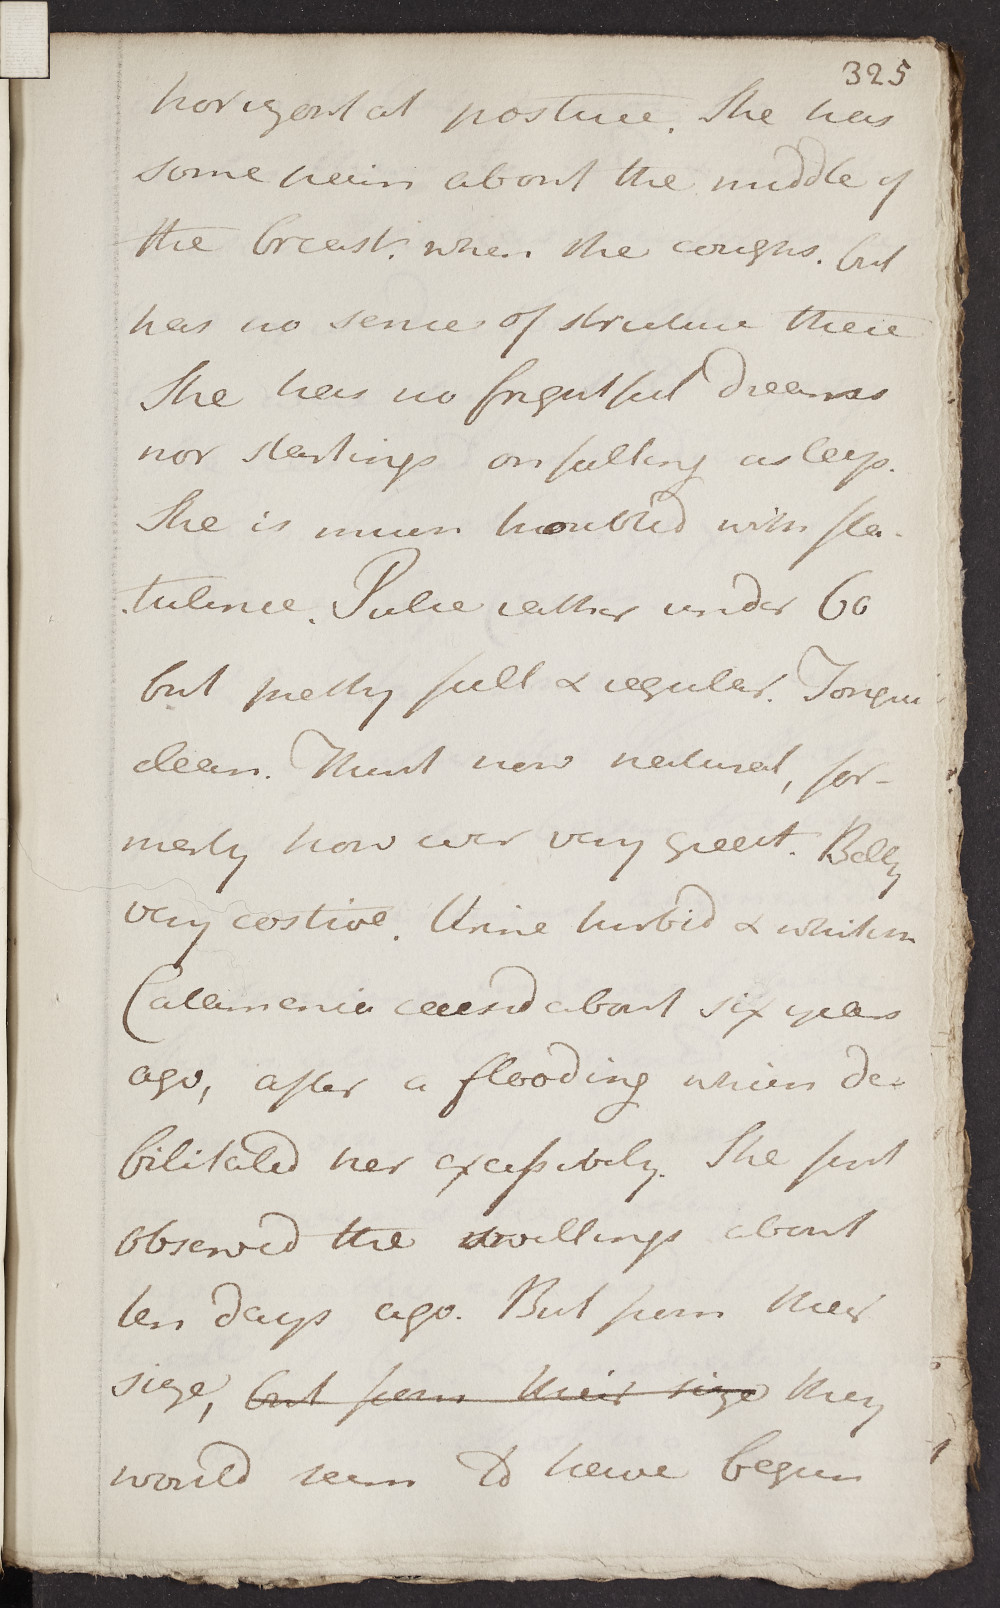 325
horizontal posture. She has
some pain about the middle of
the breast. when she coughs. but
has no sence of stricture there
She has no frightful dreams
nor startings on falling asleep.
She is much troubled with fla-
tulence. Pulse rather under 60
but pretty full & regular. Tongue
clean. Thirst now natural, for-
merly however very great. Belly
very costive. Urine turbid & whitish
Catamenia ceased about six years
ago, after a flooding which de-
bilitated her excessively. She first
observed the swellings about
ten days ago. But from their
size, but from their size they
would seem to have begun